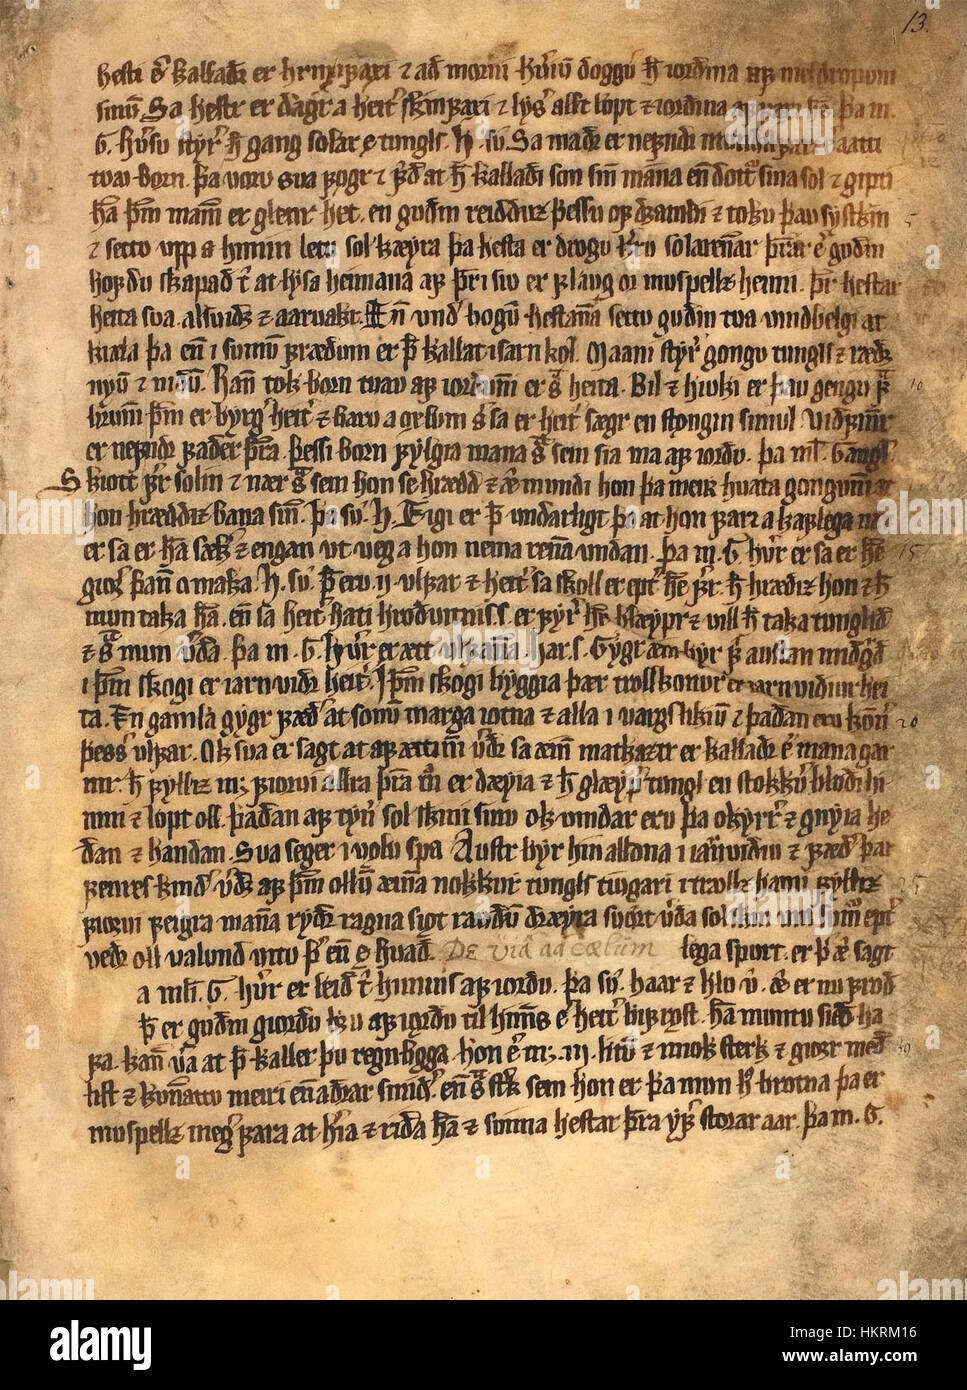 13.
hesti er kalladr er hrimfaxi ⁊ ad morni hueriu doggu han iordina af meldropum
sinum. Sa hestr er dagr a heitr skinfaxi ⁊ lyser allt lopt ⁊ iordina af
G. huersu styrer han gang solar e tungls. H. su. Sa madr er nefndr aatti
tvau born. þau voru sua fogr ⁊ frid at han kalladi son sinn mana en dottur sina sol ⁊ gipti
hana þeim manni er glenr het. en gudin reidduz þessu of dzambi ⁊ toku þau systkin
⁊ setto upp a himin letu sol kæyra þa hesta er drogu kerru solarennar þeirar er gudin
hofdu skapad til at lysa heimana af þeiri siu er flaug or muspellz heimi. þeir hestar
heita sua. alsuidr ⁊ aaruakr. En vnder bogum hestanna settu gudin tua vindbelgi at
kiala þa en i sumum frædum er þat kallat isarnkol. Maani styrer gongu tungls ⁊ rædr
nyum ⁊ nidum. Hann tok born tuau af iordunni er sua heita. Bil ⁊ hiuki er þau gengu fra
brunni þeim er byrger heiter ⁊ baru a oxlum ser sa er heiter sægr en stongin simul. Uidfinnr
er nefndr fader þeira. þessi born fylgia mana sua sem sia ma af iordu. þa mælti Gangleri
Skiott fer solin ⁊ nær sua sem hon se hrædd ⁊ æi mundi hon þa meir huata gongunni at
hon hræddiz bana sinn. þa su. H. Eigi er þat undarligt þo at hon fari akaflega nær
er sa er hana sækir ⁊ engan utveg a hon nema renna vndan. þa m. G. huer er sa er henni
gioer þann omaka. H. su. þat eru .ij. ulfar ⁊ heiter sa skoll er epter henni fer. han hrædiz hon ⁊ han
mun taka hana. en sa heiter hati hrodvitniss er fyrer henni hlæypr ⁊ vill han taka tunglid
⁊ sua mun verda. þa m. G. huer er ætt ulfanna. Har. s. Gygr æin byr fyrir austan midgard
i þeim skogi er iarnvidr heiter. I þeim skogi byggia þær trollkonur er iarnvidiur hei
ta. En gamla gygr fædir at sonum marga iotna ⁊ alla i vargs likium ⁊ þadan eru komnir
þessir ulfar. Ok sua er sagt at af ættinni verdr sa æinn matkaztr er kalladr er mana gar
mr. han fylliz með fiorvi allra þeira manna er dæyia ⁊ han glæyper tungl en stokkuer blodi hi
min ⁊ lopt oll. þadan af tyner sol skini sinu ok vindar eru þa okyrrer ⁊ gnyia he
dan ⁊ handan. Sua seger i volu spa Austr byr hin alldna i iarnvidiu ⁊ fædir þar
fenris kindir verdr af þeim ollum æinna nokkur tungls tiugari i trollz hami fylliz
fiorvi feigra manna rydr ragna siot raudum dræyra suort verda solskin um sumor epter
vedr oll valynd vitu þer enn e huad. De via ad cælum lega spurt. er þat æi sagt
a mælti. G. huer er leid til himins af iordu. þa suarar haar ⁊ hlo vid. æi er nu frod
þat er gudin giordu bru af iordu til himins er heiter bifrost. hana muntu sied ha
fa. kann vera at þat kaller þu regnboga. Hon er með .iij. litum ⁊ miok sterk ⁊ gior med
list ⁊ kunnattu meiri en adrar smider. en sua sterk sem hon er þa mun hon brotna þa er
muspellz meger fara at heria ⁊ rida hana ⁊ svima hestar þeira yfer storar aar. þa m. G.
5
10
15
20
25
alamy
Image ID: HKRM16
www.alamy.com